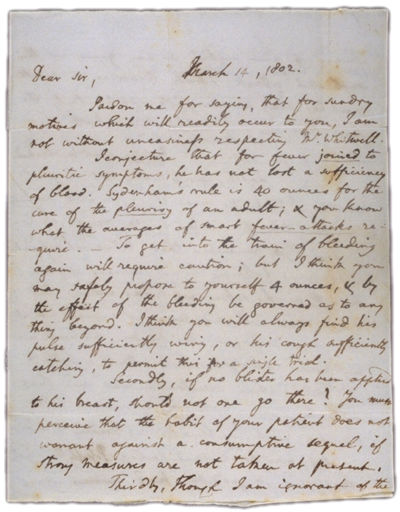 March 14, 1802.
Dear Sir,
Pardon me for saying, that for sundry
motives which will readily occur to you, I am
not without uneasiness respecting Mr. Whitwell.
I conjecture that for fever joined to
pleuritic symptoms, he has not lost a sufficiency
of blood. Sydenham's rule is 40 ounces for the
cure of the pleurisy of an adult; & you know
what the averages of smart fever-attacks re-
quire. — To get into the train of bleeding
again will require caution; but I think you
may safely propose to yourself 4 ounces, & by
the effect of the bleeding be governed as to any
thing beyond. I think you will always find his
pulse sufficiently wiry, or his cough sufficiently
catching, to permit this for a single trial.
Secondly, if no blister has been applied
to his breast, should not one go there? You must
perceive that the habit of your patient does not
warrant against a consumptive sequel, if
strong measures are not taken at present.
Thirdly, though I am ignorant of the